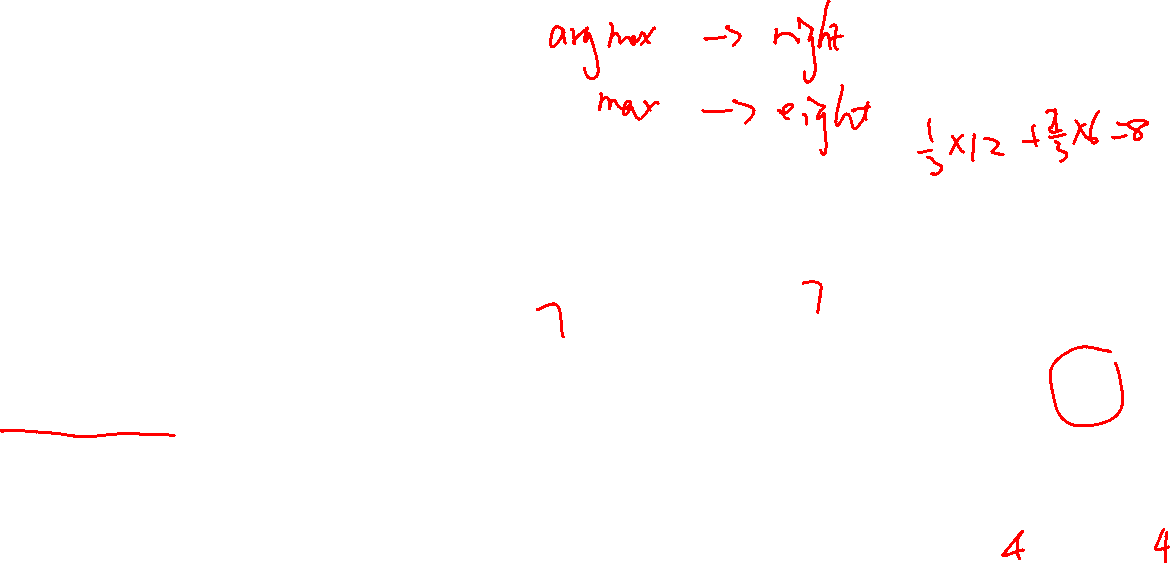 argmax → right
max → eight
1/3 × 12 + 2/3 × 6 = 8
7
7
4 4